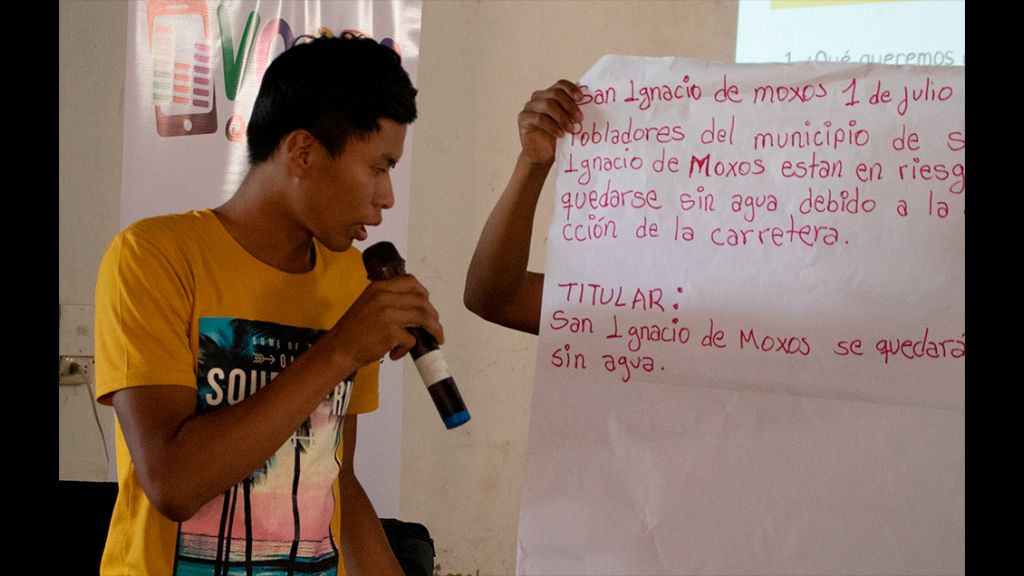 1. ¿Qué queremos
San Ignacio de moxos 1 de julio
Pobladores del municipio de S
Ignacio de Moxos estan en riesg
quedarse sin agua debido a la
cción de la carretera.
TITULAR:
San Ignacio de Moxos se quedará
sin agua.
SOME OF